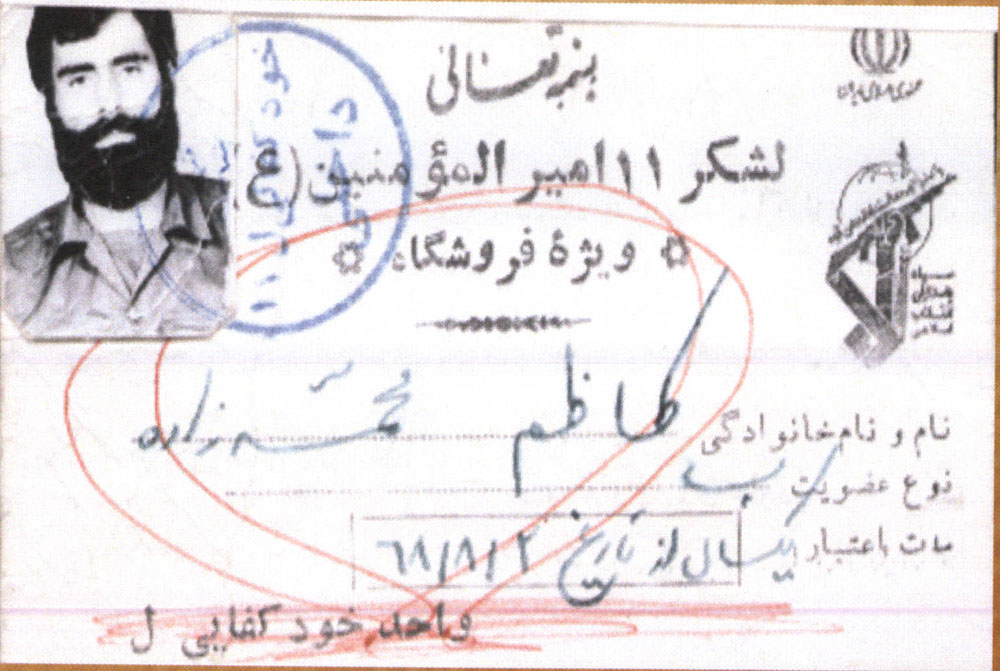 بسمه تعالی
جمهوری اسلامی ایران
لشکر ۱۱ امیر المؤمنین (ع)
۞ ویژهٔ فروشگاه ۞
سپاه پاسداران انقلاب اسلامی
نام و نام خانوادگی کاظم
نوع عضویت
مدت اعتبار یکسال از تاریخ ۶۸/۸/۲
واحد خود کفایی ل